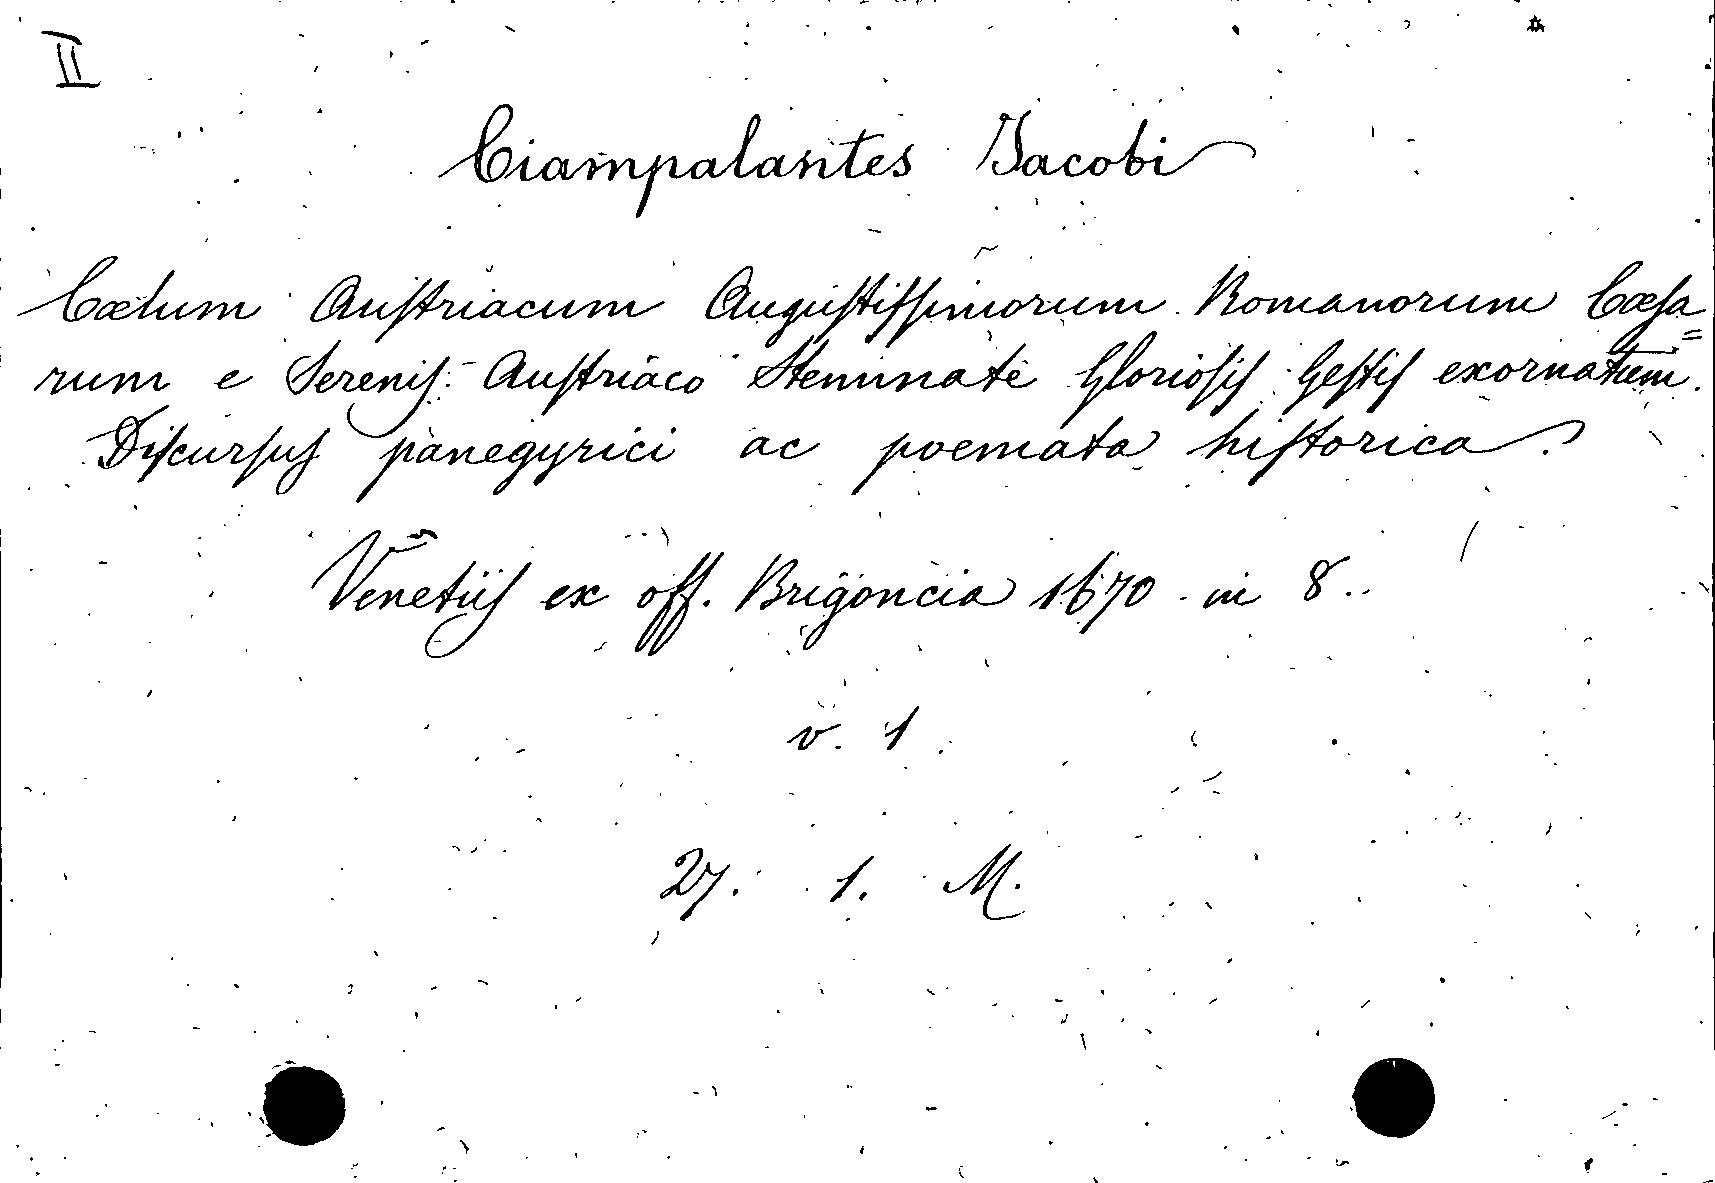 II
Ciampalantes Jacobi
Cælum Auſtriacum Auguſtiſſimorum Romanorum Cæſa=
rum e Sereniſ. Auſtriaco Stemmate Glorioſiſ Geſtiſ exornatum.
Diſcurſuſ panegyrici ac poemata hiſtorica.
Venetiiſ ex off. Brigoncia 1670 in 8.
v. 1
27. 1. M.